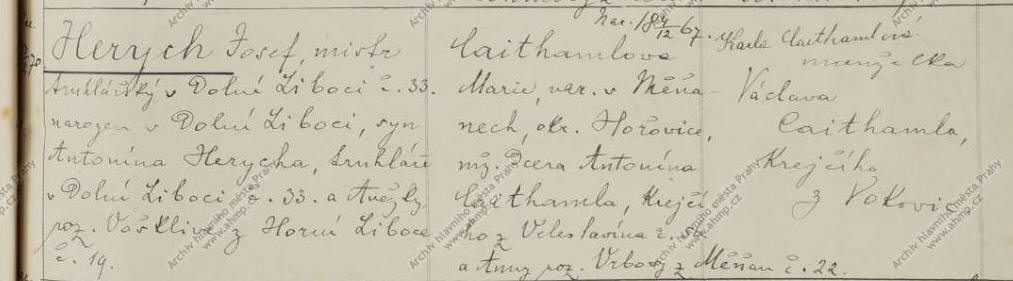 Herych Josef, mistr
truhlářský v Dolní Liboci č. 33.
narozen v Dolní Liboci, syn
Antonína Herycha, truhláře
v Dolní Liboci č. 33. a Anežky
roz. z Horní Liboce
č. 19.
Nar. 18 4/12 67.
Caithamlova
Marie, nar. v Měňa-
nech, okr. Hořovice,
mž. Dcera Antonína
Caithamla, Krejčí-
ho z Veleslavína č.
a Anny roz. Vrbovy z Měňan č. 22.
Karla Caithamlová
manželka
Václava
Caithamla,
Krejčího
z Vokovic
Archiv hlavního města Prahy
www.ahmp.cz